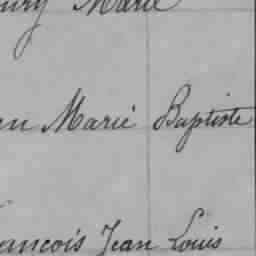 ury Marie
en Marie Baptiste
ancois Jean Louis